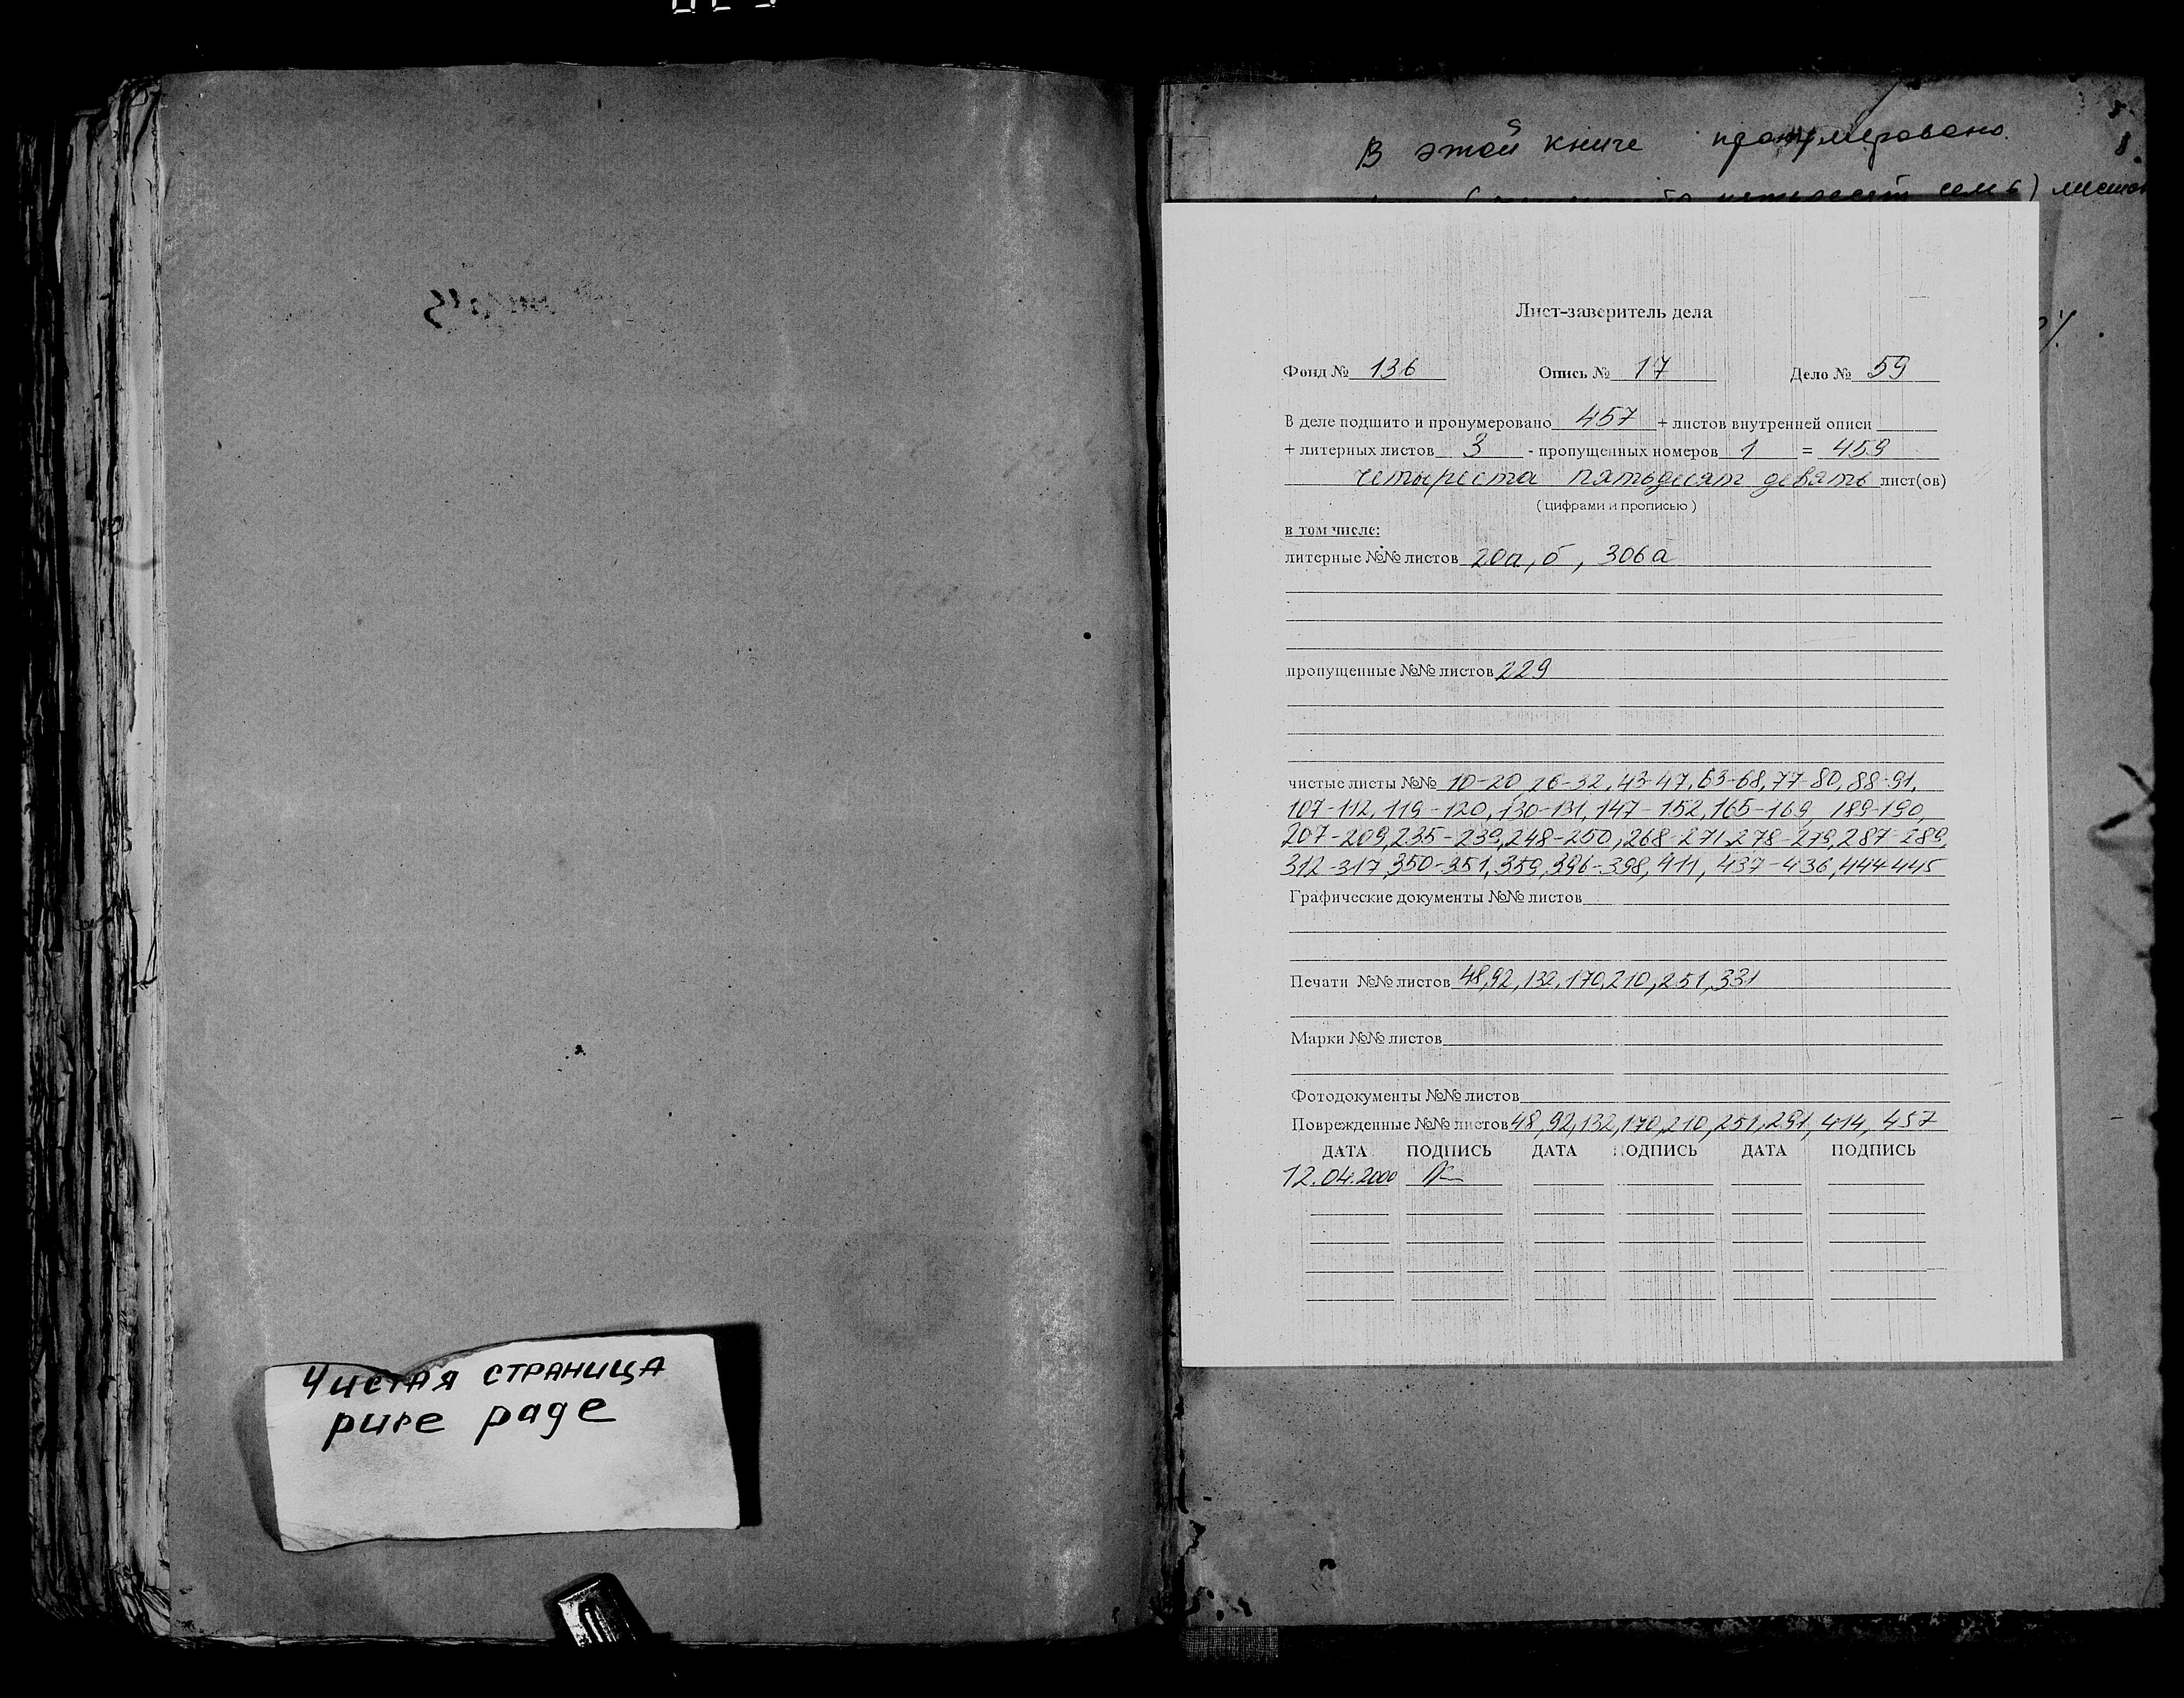 Чистая страница
pure page
В этой книге пронумеровано
пятьдесят семь) листов
Лист-заверитель дела
Фонд № 136 Опись № 17 Дело № 59
В деле подшито и пронумеровано 457 + листов внутренней описи
+ литерных листов 3 - пропущенных номеров 1 = 459
четыреста пятьдесят девять лист(ов)
(цифрами и прописью)
в том числе:
литерные №№ листов 20а, б, 306а
пропущенные №№ листов 229
чистые листы №№ 10-20, 26-32, 43-47, 63-68, 77-80, 88-91,
107-112, 119-120, 130-131, 147-152, 165-169, 189-190,
207-209, 235-239, 248-250, 268-271, 278-279, 287-289,
312-317, 350-351, 359, 396-398, 411, 437-436, 444-445
Графические документы №№ листов
Печати №№ листов 48, 92, 132, 170, 210, 251, 331
Марки №№ листов
Фотодокументы №№ листов
Поврежденные №№ листов 48, 92, 132, 170, 210, 251, 291, 414, 457
ДАТА ПОДПИСЬ ДАТА ПОДПИСЬ ДАТА ПОДПИСЬ
12.04.2000